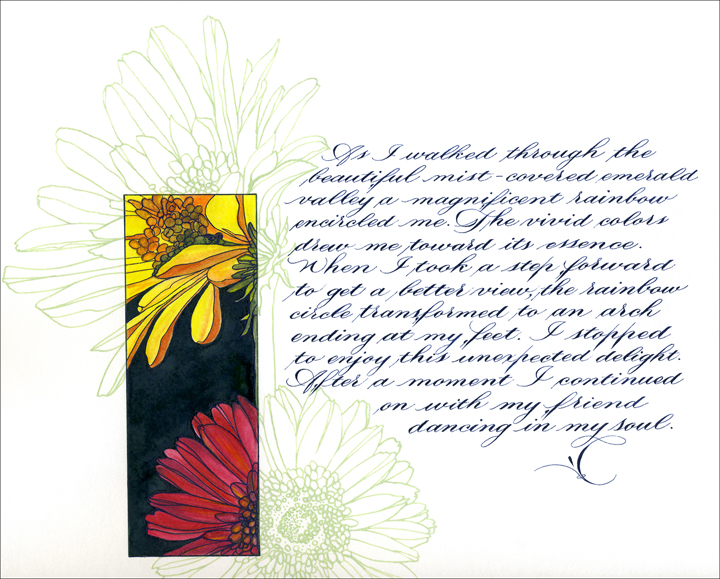 As I walked through the
beautiful mist-covered emerald
valley a magnificent rainbow
encircled me. The vivid colors
drew me toward its essence.
When I took a step forward
to get a better view, the rainbow
circle transformed to an arch
ending at my feet. I stopped
to enjoy this unexpected delight.
After a moment I continued
on with my friend
dancing in my soul.